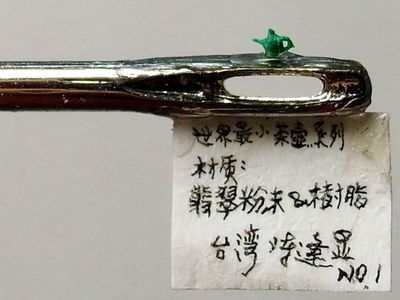 世界最小茶壺系列
材质:
翡翠粉末&樹脂
台湾 陳逢显
NO.1